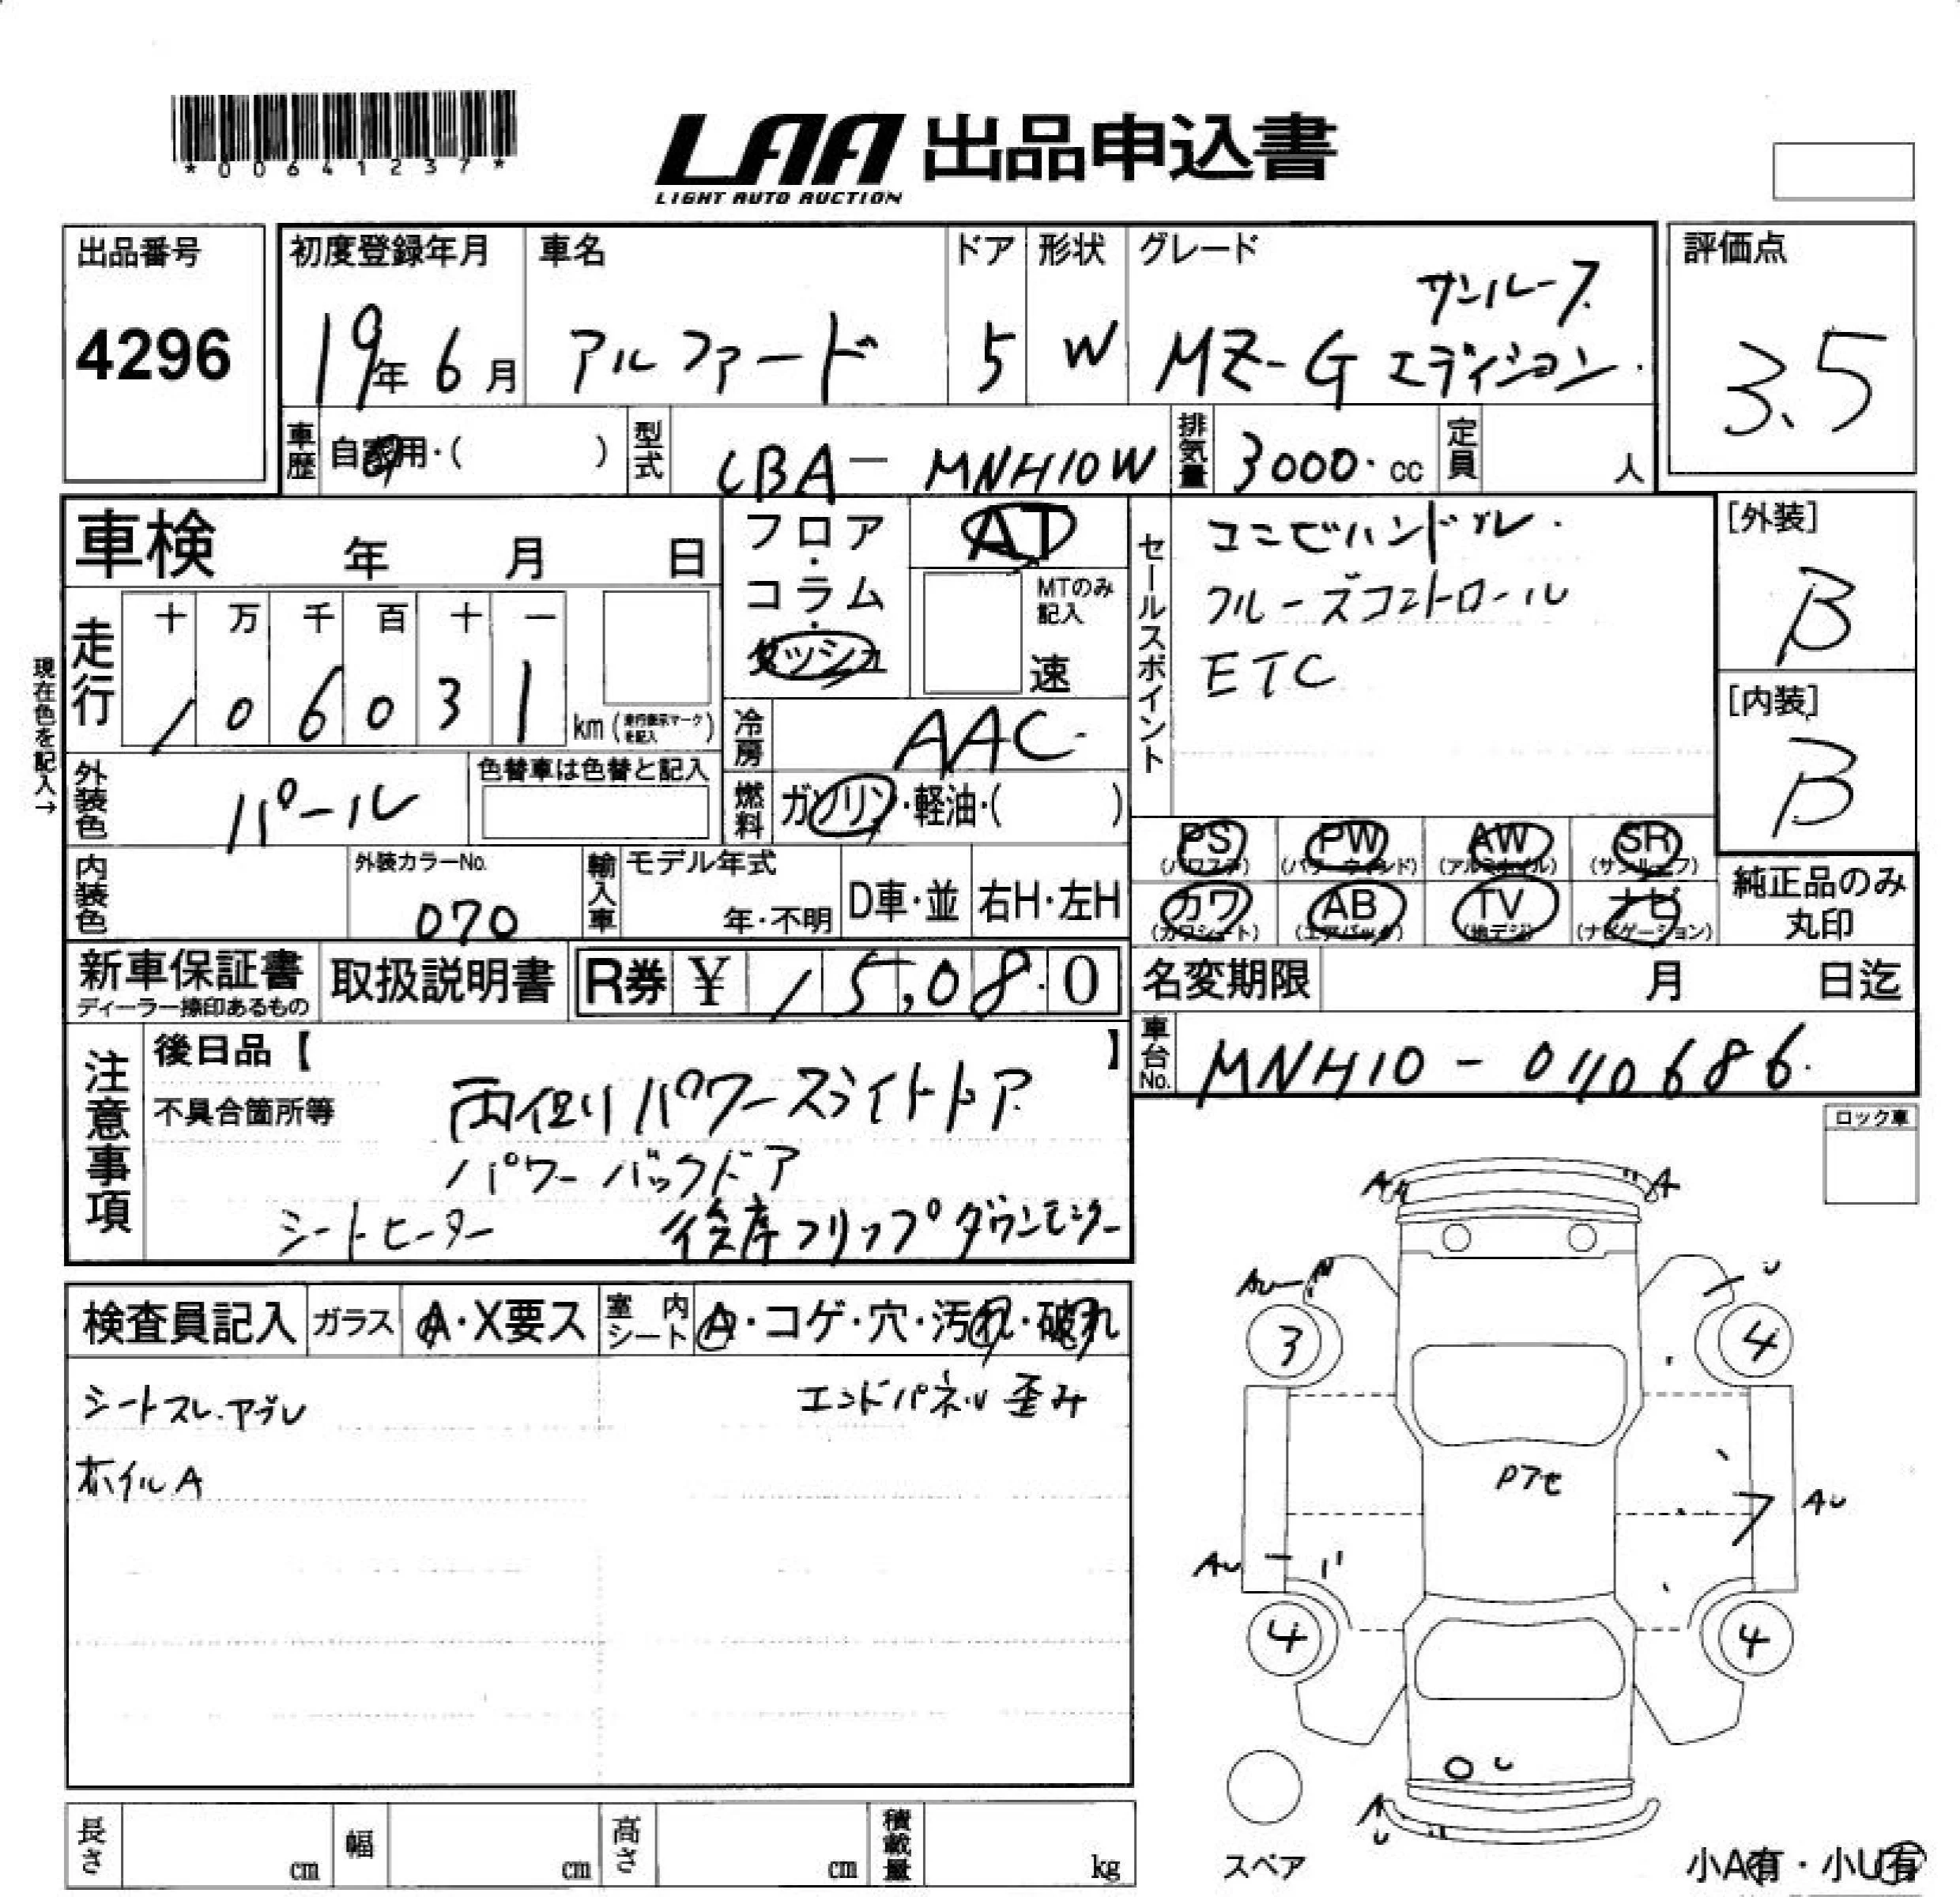 *00641237*
LAA 出品申込書
LIGHT AUTO AUCTION
出品番号
4296
初度登録年月
19年 6月
車名
アルファード
ドア
5
形状
W
グレード
サンルーフ
MZ-G エディション
評価点
3.5
車歴
自家用・( )
型式
CBA-MNH10W
排気量
3000.cc
定員
人
車検 年 月 日
フロア・コラム・ダッシュ
AT
MTのみ記入
速
セールスポイント
コンビハンドル.
クルーズコントロール
ETC
[外装]
B
[内装]
B
現在色を記入→
走行
十 万 千 百 十 一
1 0 6 0 3 1
km (走行表示マークを記入)
冷房
AAC
外装色
パール
色替車は色替と記入
燃料
ガソリン・軽油・( )
PS (パワステ)
PW (パワーウィンド)
AW (アルミホイル)
SR (サンルーフ)
内装色
外装カラーNo.
070
輸入車
モデル年式
年・不明
D車・並
右H・左H
カワ (カワシート)
AB (エアバック)
TV (地デジ)
ナビ (ナビゲーション)
純正品のみ丸印
新車保証書
ディーラー捺印あるもの
取扱説明書
R券 ¥ 15,080
名変期限 月 日迄
注意事項
後日品【 】
不具合箇所等
両側パワースライドドア
パワーバックドア
シートヒーター 後席フリップダウンモニター
車台No.
MNH10-0110686.
ロック車
検査員記入
ガラス
A・X要ス
室内シート
A・コゲ・穴・汚れ・破れ
シートスレ.アブレ
エンドパネル歪み
ホイルA
A
A
AU
U
3
4
Pアセ
AU
AU
4
4
U
A
U
スペア
小A有・小U有
長さ cm
幅 cm
高さ cm
積載量 kg